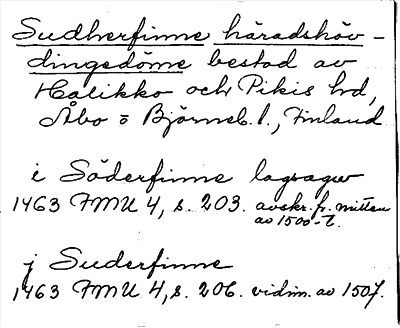 Sudherfinne häradshöv-
dingedöme bestod av
Halikko och Pikis hd,
Åbo o Björneb. l., Finland
i Söderfinne lagsagu
1463 FMU 4, s. 203. avskr. fr. mitten
av 1500-t.
j Suderfinne
1463 FMU 4, s. 206. vidim. av 1507.